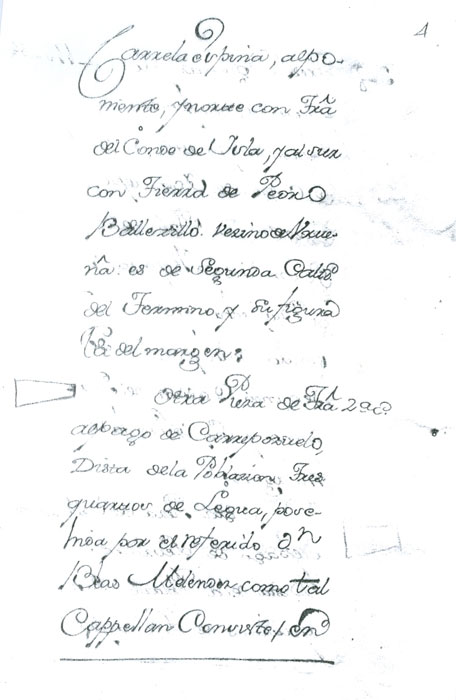 4
Carrela espina, alpo-
niente, y norte con Trã
del Conde de Isla, y al sur
con Tierra de Pedro
Ballesillo vecino de Nrue-
ña: es de Segunda Calid.
del Termino, y su figura
la del margen:
Otra Pieza de Trã 2ª C.ª
al pago de Carreponuelo,
Dista dela Poblazion Tres
quartos de Legua, pose-
hida por el referido Dn
Blas Melendez como tal
Cappellan Consiste en